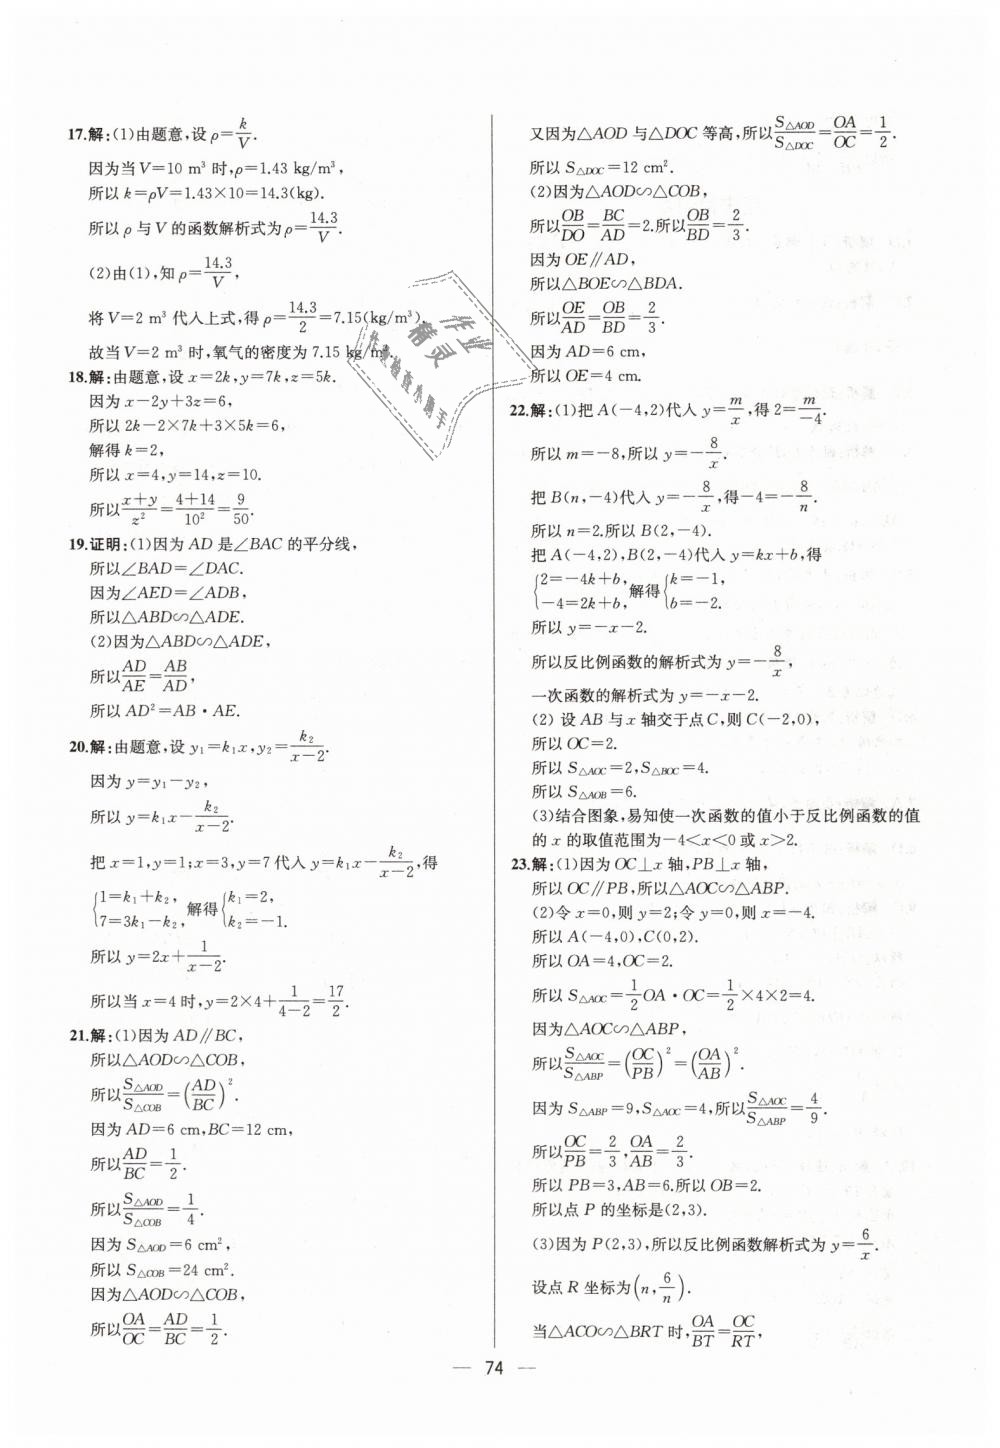 17.解:(1)由题意,设ρ=k/V.
因为当V=10 m³时,ρ=1.43 kg/m³,
所以k=ρV=1.43×10=14.3(kg).
所以ρ与V的函数解析式为ρ=14.3/V.
(2)由(1),知ρ=14.3/V,
将V=2 m³代入上式,得ρ=14.3/2=7.15(kg/m³).
故当V=2 m³时,氧气的密度为7.15 kg/m³.
18.解:由题意,设x=2k,y=7k,z=5k.
因为x-2y+3z=6,
所以2k-2×7k+3×5k=6,
解得k=2,
所以x=4,y=14,z=10.
所以(x+y)/z²=(4+14)/10²=9/50.
19.证明:(1)因为AD是∠BAC的平分线,
所以∠BAD=∠DAC.
因为∠AED=∠ADB,
所以△ABD∽△ADE.
(2)因为△ABD∽△ADE,
所以AD/AE=AB/AD,
所以AD²=AB·AE.
20.解:由题意,设y₁=k₁x,y₂=k₂/(x-2).
因为y=y₁-y₂,
所以y=k₁x-k₂/(x-2).
把x=1,y=1;x=3,y=7代入y=k₁x-k₂/(x-2),得
{1=k₁+k₂, 7=3k₁-k₂, 解得{k₁=2, k₂=-1.
所以y=2x+1/(x-2).
所以当x=4时,y=2×4+1/(4-2)=17/2.
21.解:(1)因为AD∥BC,
所以△AOD∽△COB,
所以S△AOD/S△COB=(AD/BC)².
因为AD=6 cm,BC=12 cm,
所以AD/BC=1/2.
所以S△AOD/S△COB=1/4.
因为S△AOD=6 cm²,
所以S△COB=24 cm².
因为△AOD∽△COB,
所以OA/OC=AD/BC=1/2.
又因为△AOD与△DOC等高,所以S△AOD/S△DOC=OA/OC=1/2.
所以S△DOC=12 cm².
(2)因为△AOD∽△COB,
所以OB/DO=BC/AD=2.所以OB/BD=2/3.
因为OE∥AD,
所以△BOE∽△BDA.
所以OE/AD=OB/BD=2/3.
因为AD=6 cm,
所以OE=4 cm.
22.解:(1)把A(-4,2)代入y=m/x,得2=m/-4.
所以m=-8,所以y=-8/x.
把B(n,-4)代入y=-8/x,得-4=-8/n.
所以n=2.所以B(2,-4).
把A(-4,2),B(2,-4)代入y=kx+b,得
{2=-4k+b, -4=2k+b, 解得{k=-1, b=-2.
所以y=-x-2.
所以反比例函数的解析式为y=-8/x,
一次函数的解析式为y=-x-2.
(2)设AB与x轴交于点C,则C(-2,0),
所以OC=2.
所以S△AOC=2,S△BOC=4.
所以S△AOB=6.
(3)结合图象,易知使一次函数的值小于反比例函数的值
的x的取值范围为-4<x<0或x>2.
23.解:(1)因为OC⊥x轴,PB⊥x轴,
所以OC∥PB,所以△AOC∽△ABP.
(2)令x=0,则y=2;令y=0,则x=-4.
所以A(-4,0),C(0,2).
所以OA=4,OC=2.
所以S△AOC=1/2OA·OC=1/2×4×2=4.
因为△AOC∽△ABP,
所以S△AOC/S△ABP=(OC/PB)²=(OA/AB)².
因为S△ABP=9,S△AOC=4,所以S△AOC/S△ABP=4/9.
所以OC/PB=2/3,OA/AB=2/3.
所以PB=3,AB=6.所以OB=2.
所以点P的坐标是(2,3).
(3)因为P(2,3),所以反比例函数解析式为y=6/x.
设点R坐标为(n,6/n).
当△ACO∽△BRT时,OA/BT=OC/RT,
作业
精灵
作业检查小助手
— 74 —